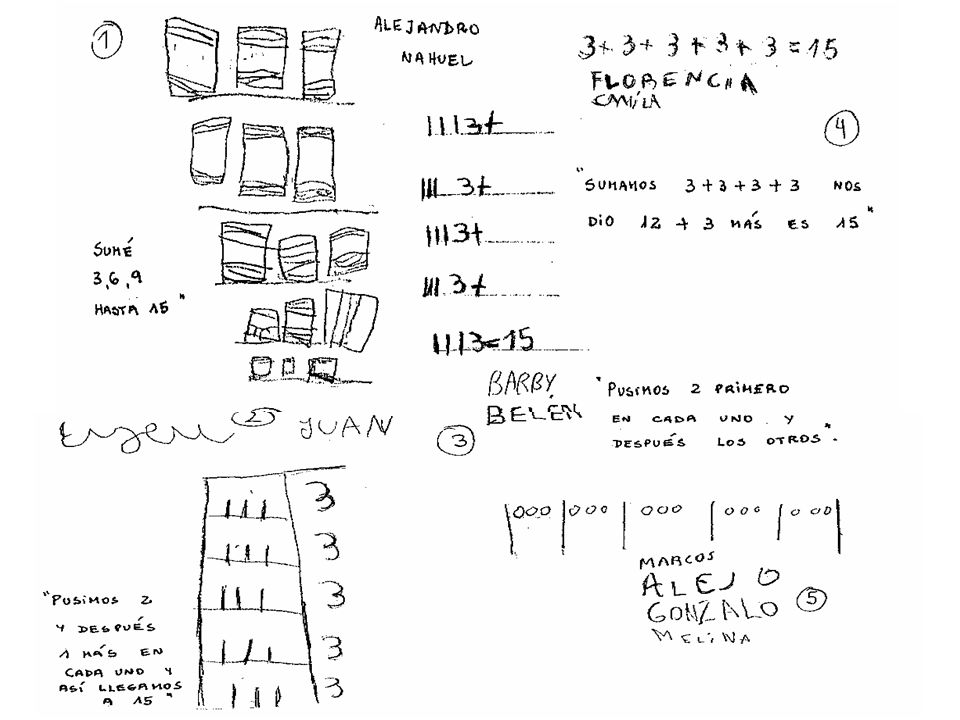 1
ALEJANDRO
NAHUEL
SUMÉ
3,6,9
HASTA 15"
3+3+3+3+3=15
FLORENCIA
CAMILA
4
"SUMAMOS 3+3+3+3 NOS
DIO 12 + 3 MÁS ES 15"
III3+
III 3+
III3+
III 3+
III3=15
BARBY
BELÉN
3
"PUSIMOS 2 PRIMERO
EN CADA UNO Y
DESPUÉS LOS OTROS".
2
JUAN
III 3
III 3
III 3
III 3
III 3
"PUSIMOS 2
Y DESPUÉS
1 MÁS EN
CADA UNO Y
ASÍ LLEGAMOS
A 15"
|000|000|000|000|000|
MARCOS
ALEJO
GONZALO
MELINA
5